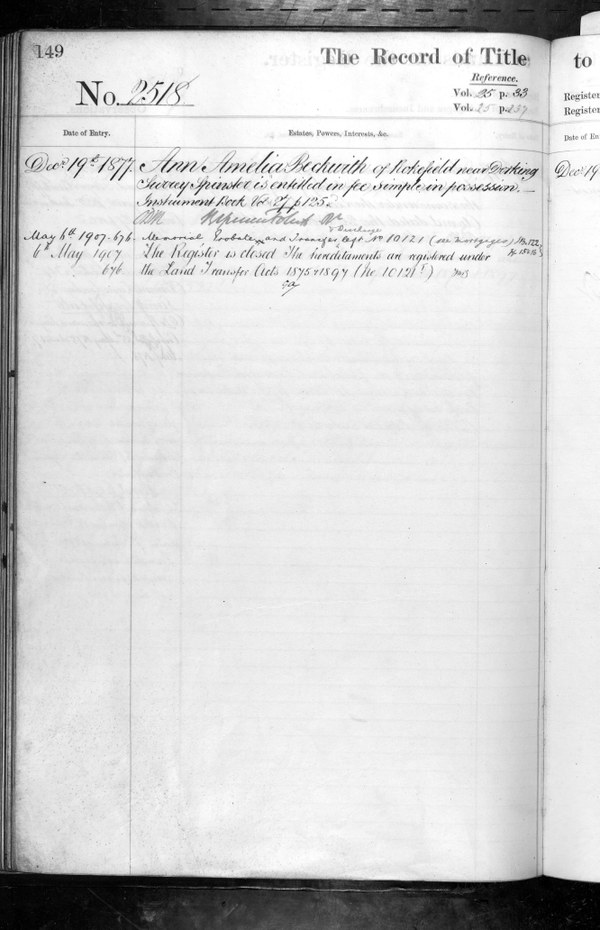 149
The Record of Title
to
No. 2518
Reference.
Vol. 25 p. 33
Vol. 25 p. 237
Register
Register
Date of Entry.
Estates, Powers, Interests, &c.
Date of En
Decr. 19th. 1877.
Ann Amelia Beckwith of Rokefield near Dorking
Surrey Spinster is entitled in fee simple in possession.
Instrument Book Vol 27 p 125.
Decr 19
& Discharge
May 6th 1907. 676.
Memorial Probate, and Transfer No 10121 (see Mortgages)
6th May 1907
676
The Register is closed The hereditaments are registered under
the Land Transfer Acts 1875 & 1897 (No. 10121)